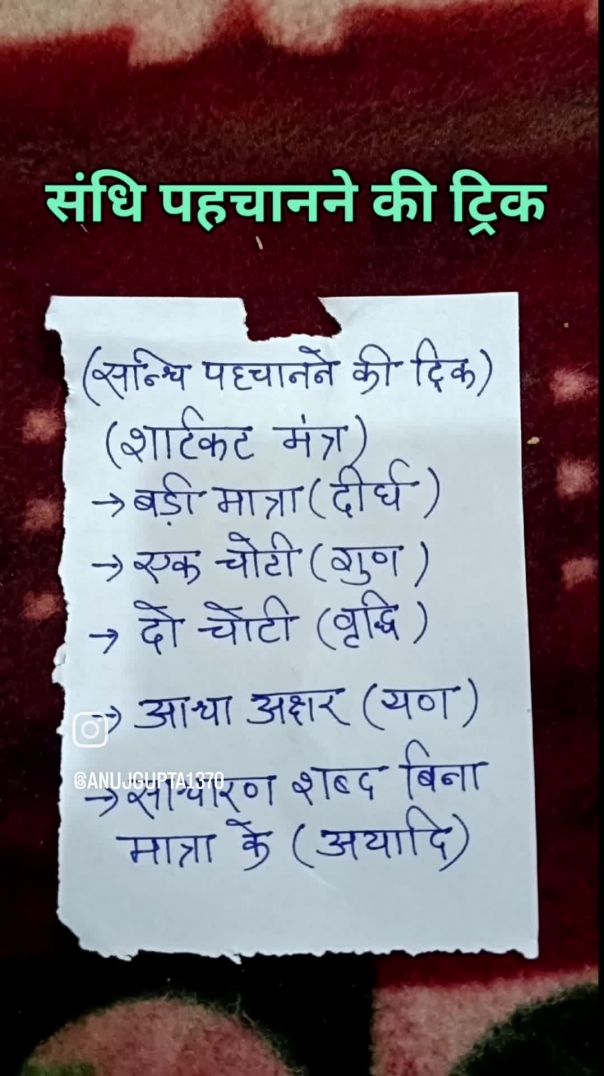 संधि पहचानने की ट्रिक
(सन्धि पहचानने की ट्रिक)
(शार्टकट मंत्र)
→ बड़ी मात्रा (दीर्घ)
→ एक चोटी (गुण)
→ दो चोटी (वृद्धि)
→ आधा अक्षर (यण)
@ANUJGUPTA1370
→ साधारण शब्द बिना
मात्रा के (अयादि)